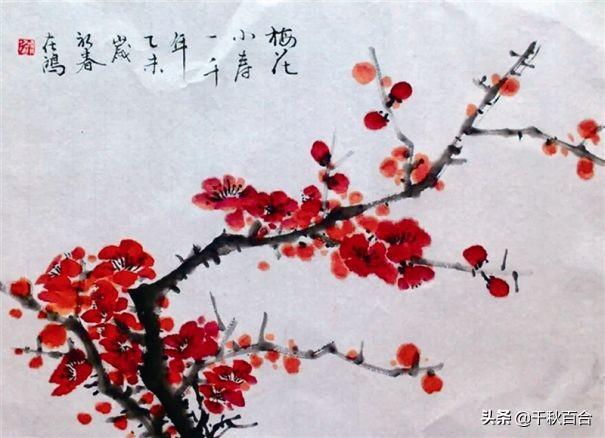 梅花
小寿
一千
年
乙未
歲
初春
在鴻
头条 @千秋百合